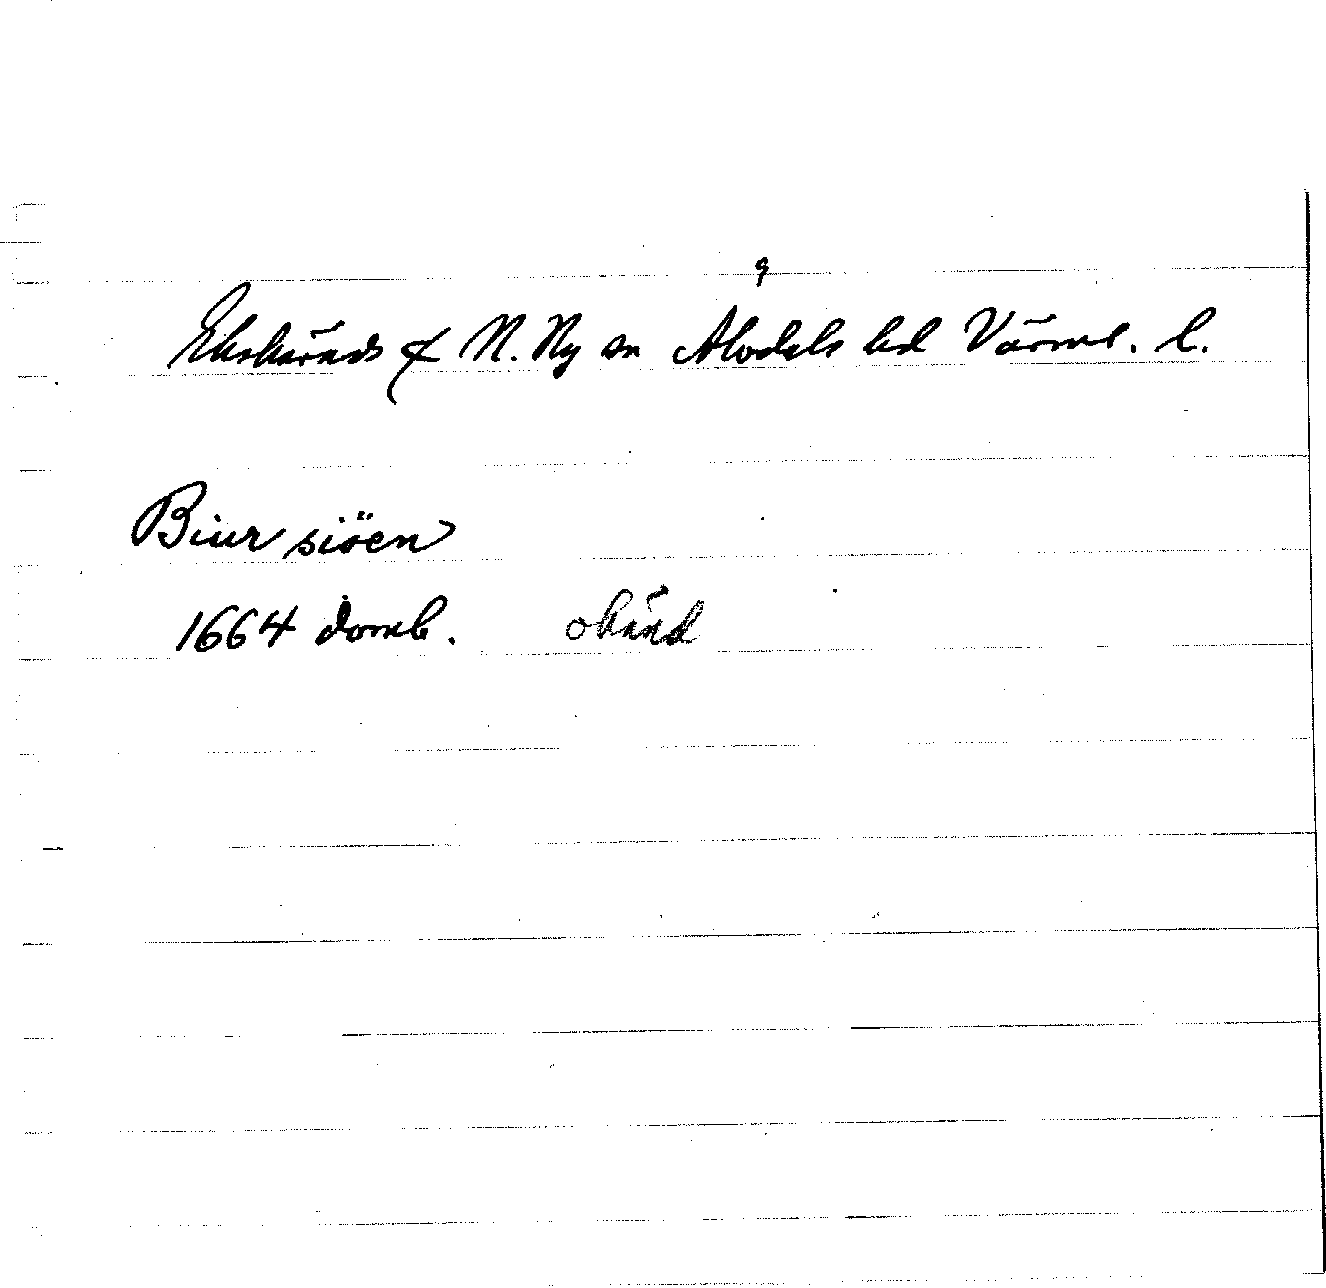 Ekshärads f N. Ny sn Älvdals hd Värml. l.
Biursiöen
1664 domb. okänd